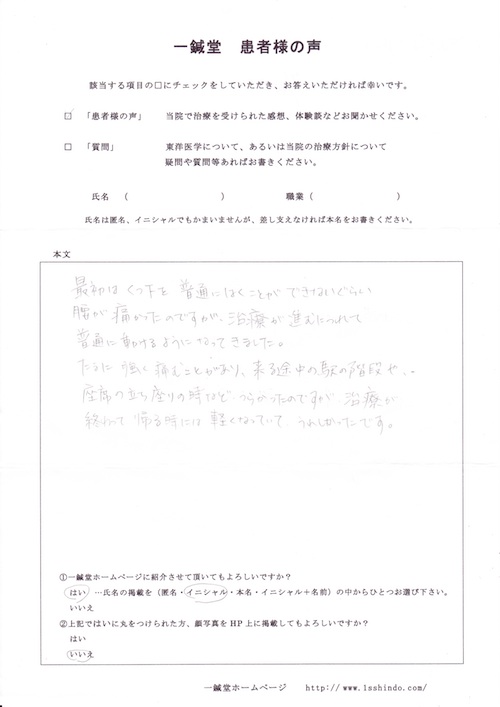 一鍼堂 患者様の声
該当する項目の□にチェックをしていただき、お答えいただければ幸いです。
□ 「患者様の声」 当院で治療を受けられた感想、体験談などお聞かせください。
□ 「質問」 東洋医学について、あるいは当院の治療方針について
疑問や質問等あればお書きください。
氏名 ( ) 職業 ( )
氏名は匿名、イニシャルでもかまいませんが、差し支えなければ本名をお書きください。
本文
最初は くつ下を 普通にはくことが できないぐらい
腰が 痛かったのですが、治療が 進むにつれて
普通に動けるようになってきました。
たまに 強く痛むことがあり、来る途中の駅の階段や、
座席の立ち座りの時など つらかったのですが、治療が
終わって 帰る時には 軽くなっていて、うれしかったです。
①一鍼堂ホームページに紹介させて頂いてもよろしいですか？
はい …氏名の掲載を（匿名・イニシャル・本名・イニシャル＋名前）の中からひとつお選び下さい。
いいえ
②上記ではいに丸をつけられた方、顔写真をHP上に掲載してもよろしいですか？
はい
いいえ
一鍼堂ホームページ http://www.1sshindo.com/